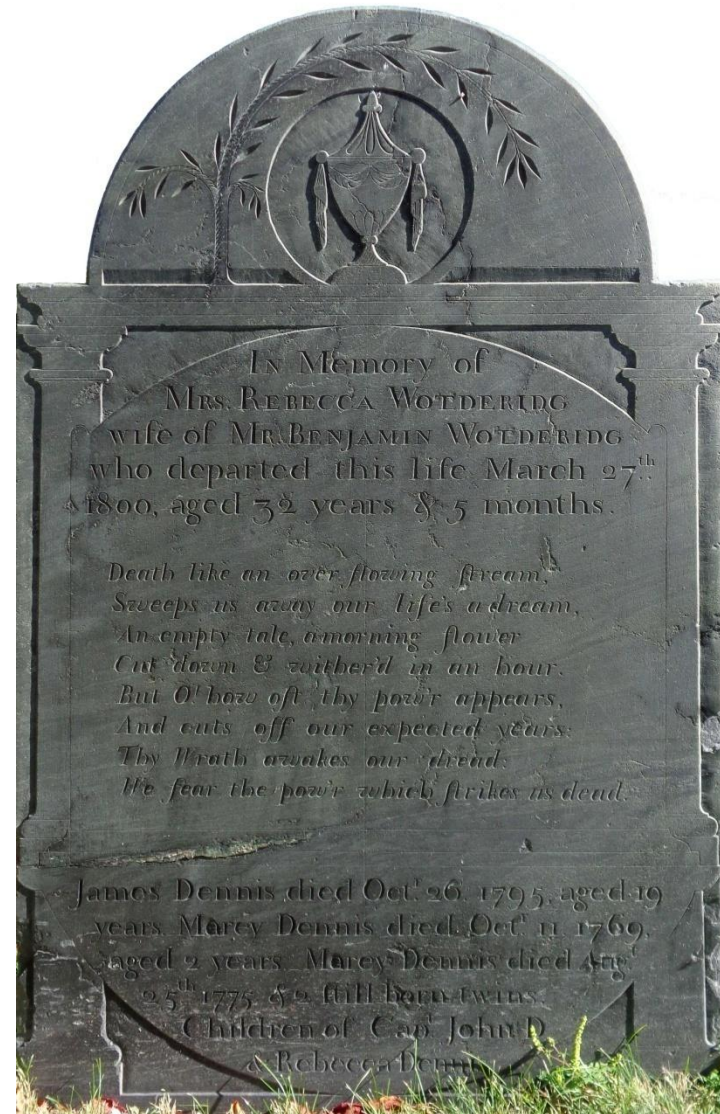 In Memory of
Mrs. Rebecca Wotderidg
wife of Mr. Benjamin Wotderidg
who departed this life March 27th
1800, aged 32 years & 5 months.
Death like an over flowing stream,
Sweeps us away our life's a dream,
An empty tale, a morning flower
Cut down & wither'd in an hour.
But O! how oft thy pow'r appears,
And cuts off our expected years:
Thy Wrath awakes our dread:
We fear the pow'r which strikes us dead.
James Dennis died Oct. 26. 1795, aged 19
years. Marcy Dennis died Oct. 11 1769,
aged 2 years. Marcy Dennis died Augt
25th 1775 & 2 still born twins.
Children of Capt John D
& Rebecca Denn